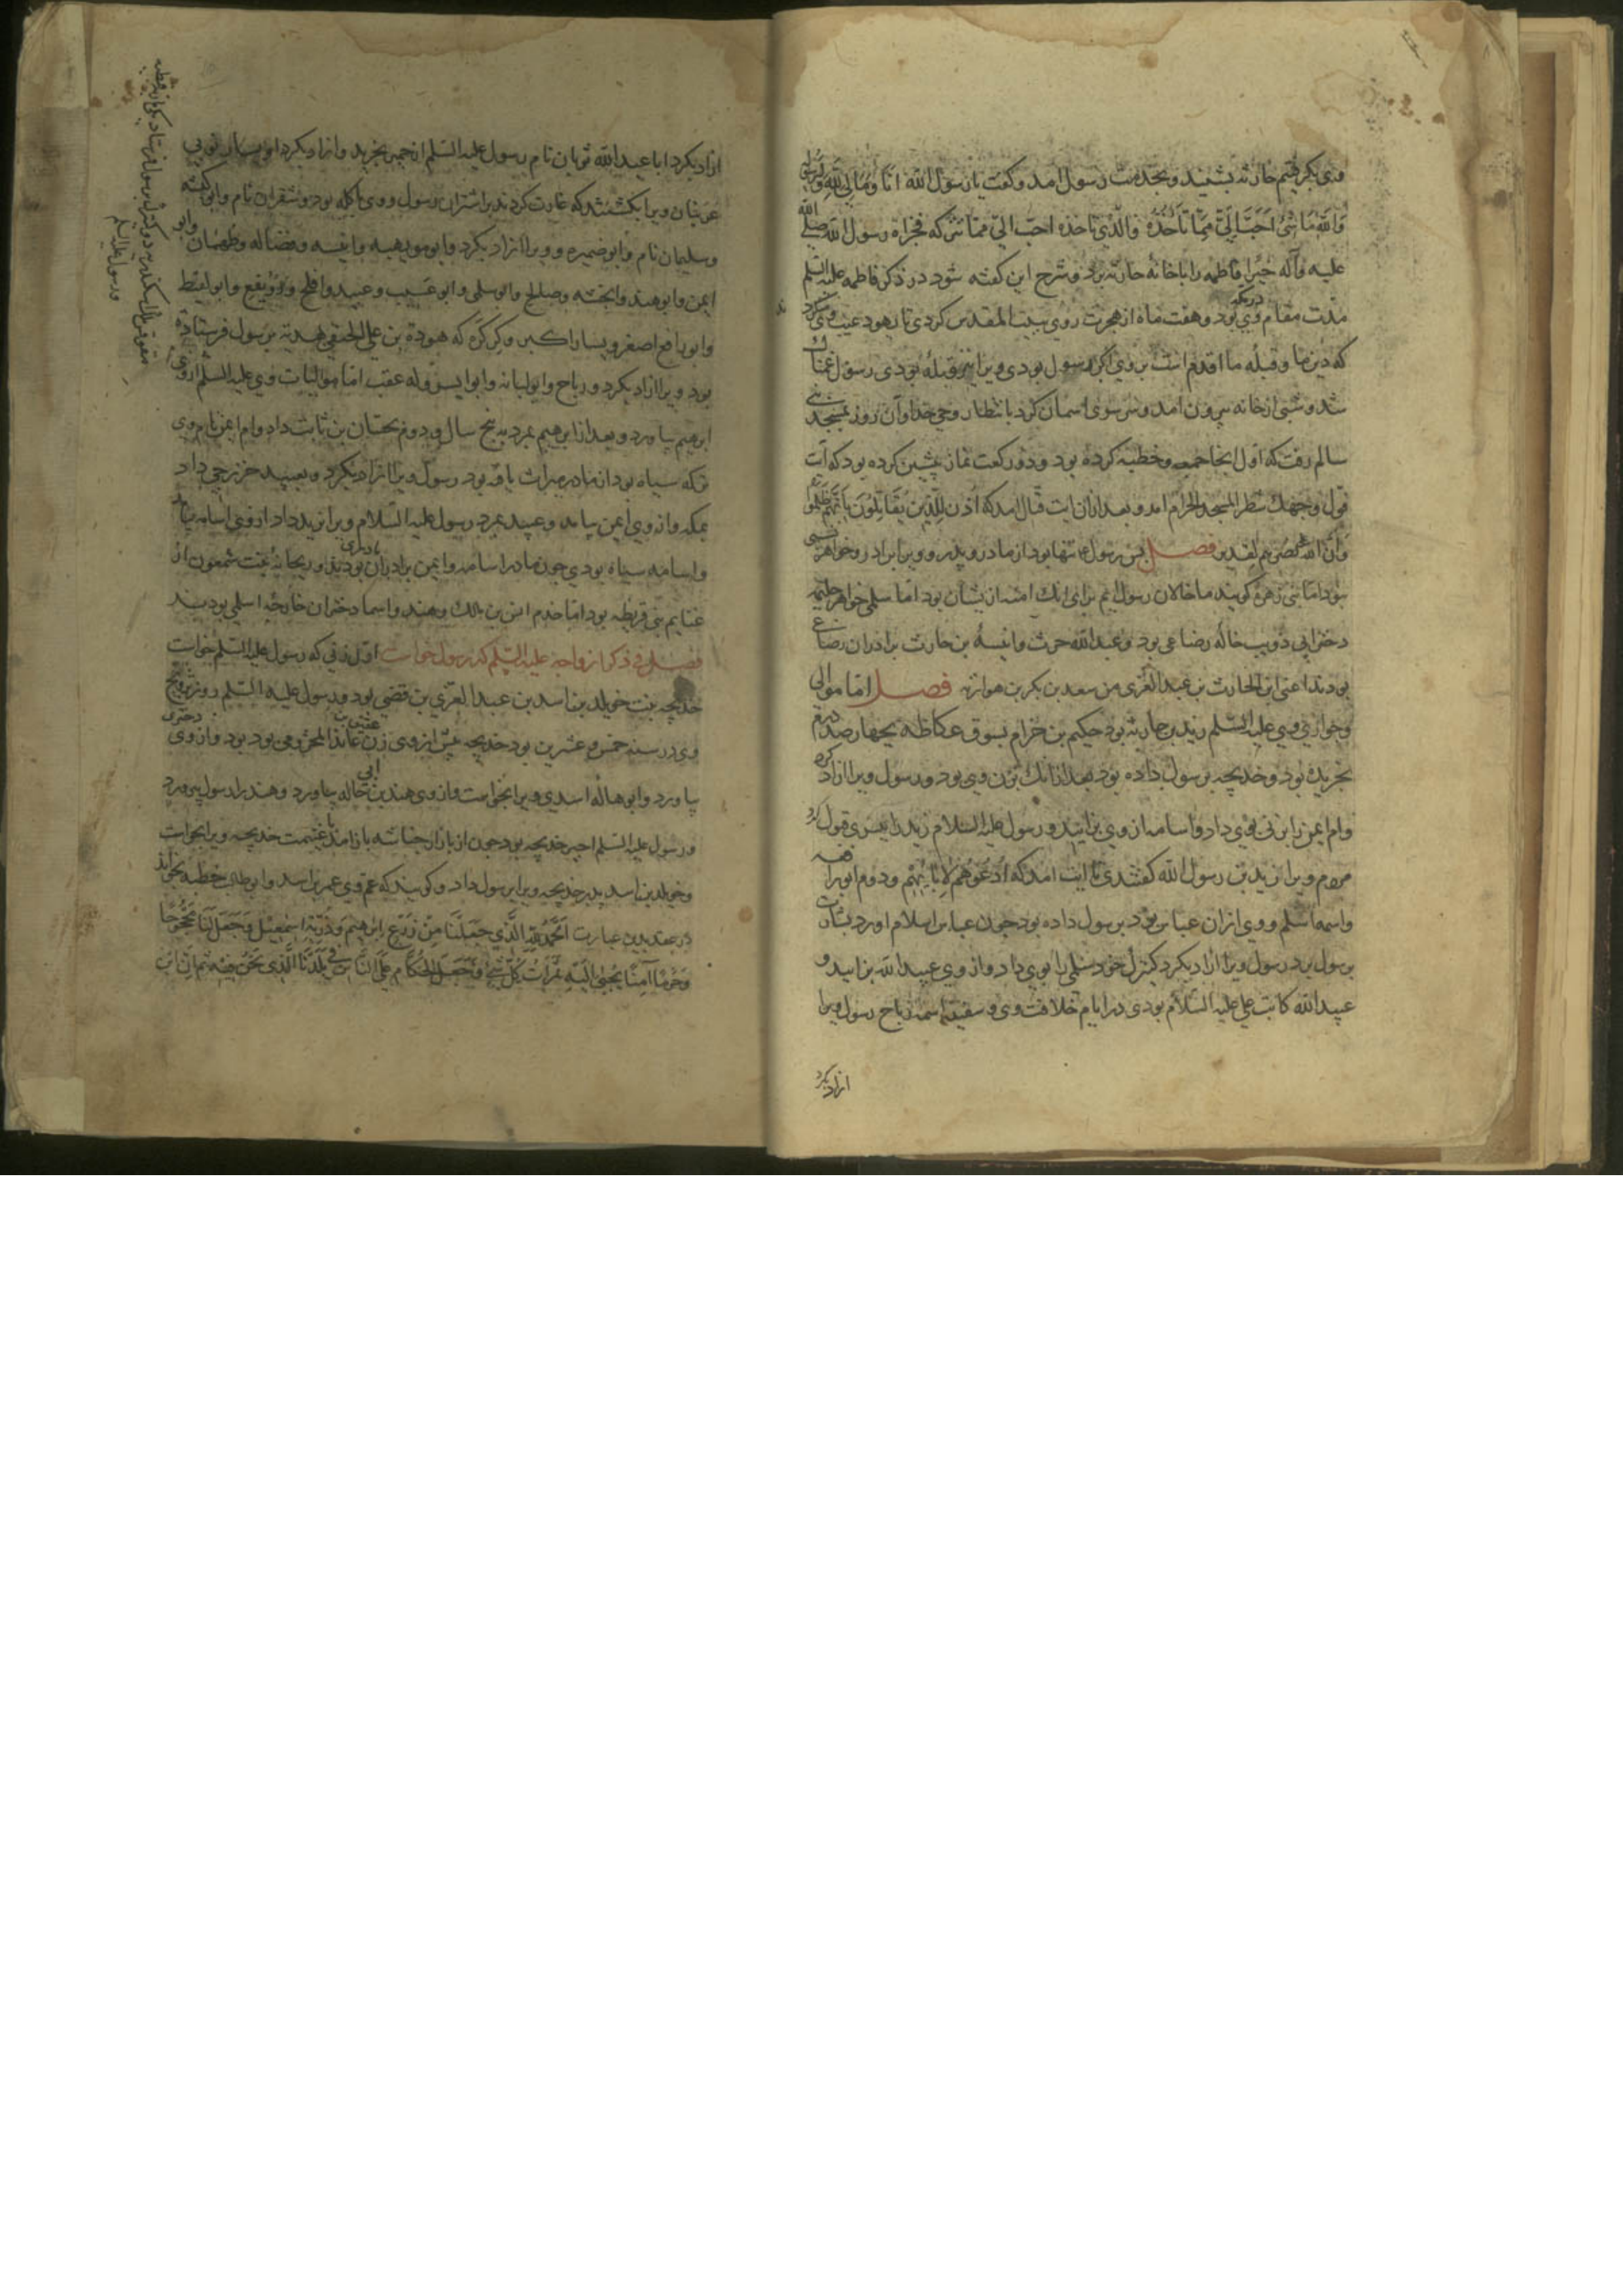 وی بکرفتم حارثه بشنید و بخدمت رسول آمد و کفت یا رسول الله انا و مالی لله و لرسوله
والله ما شیء احب الی مما تاخذه والذی تاخذه احب الی مما تترکه فجزاه رسول الله صلی الله
علیه وآله خیرا فاطمه را با خانهٔ حارثه برد و شرح این کفته شود در ذکر فاطمه علیها السلم
مدت مقام وی بود و هفت ماه از هجرت روی ببیت المقدس کردی تا یهود عیب وی کرد
که دین ما و قبله ما اقدم است بر وی اکر رسول بودی ویرا نیز قبله بودی رسول غمناک
شد و شبی از خانه بیرون آمد و سر سوی اسمان کرد بانتظار وحی خدا و آن روز بمسجد بنی
سالم رفت که اول انجا جمعه و خطبه کرده بود و دو رکعت نماز پیشین کرده بود که آیت
فول وجهک شطر المسجد الحرام آمد و بعد ازان ایت قتال آمد که اذن للذین یقاتلون بانهم ظلموا
وان الله علی نصرهم لقدیر فصل بدن رسول تنها بود از مادر و پدر و ویرا برادر و خواهر نسبی
نبود اما بنی زهره کویند ما خالان رسول ایم برای انک امنه از یشان بود اما سلمی خواهر حلیمه
دختر ابی ذویب خاله رضاعی بود و عبدالله حرث وانیسه بن حارث برادران رضاعی
بودند اعنی ابن الحارث بن عبد العزی من سعد بن بکر بن هوازن فصل اما موالی
وجواری وی علیه السلم زید بن حارثه بود حکیم بن خزام بسوق عکاظه بچهارصد درم
بخریده بود و خدیجه برسول داده بود بعد ازانک بزن وی بود و رسول ویرا ازاد کرد
وام ایمن را بزنی بوی داد و اسامه از وی بزایید و رسول علیه السلام زید را بپسری قبول کرد
مردم ویرا زید بن رسول الله کفتندی تا ایت امد که ادعوهم لابائهم و دوم ابورافع
واسمه اسلم و وی ازان عباس بود برسول داده بود چون عباس اسلام اورد بشارت
برسول برد رسول ویرا ازاد بکرد کنیزک خود سلمی را بوی داد و از وی عبیدالله بزایید و
عبیدالله کاتب علی علیه السلام بودی در ایام خلافت وی و سفینه اسمه رباح رسول ویرا
ازاد بکرد
ازاد بکرد ابا عبدالله ثوبان نام رسول علیه السلم از حمیر بخرید و ازاد بکرد او یسار نوبی
عرنیان ویرا بکشتند که غارت کردند بر اشتران رسول و وی با کله بود و شقران نام وابو کبشه
وسلیمان نام وابو ضمیره و ویرا ازاد بکرد وابو مویهبه وانیسه وفضاله وطهمان وابو
ایمن وابو هند وانجشه وصالح وابو سلمی وابو عسیب وعبید وافلح ورویقع وابو لقیط
وابو رافع اصغر ویسار اکبر وکرکره که هوذة بن علی الحنفی بهدیه برسول فرستاده
بود ویرا ازاد بکرد ورباح وابو لبابه وابو الیسر وله عقب اما موالیات وی علیه السلم
ابرهیم بیاورد و بعد از ابرهیم بمرد به پنج سال و دوم بحسان بن ثابت داد وام ایمن نام وی
برکه سیاه بود از مادر میراث یافته بود رسول ویرا ازاد بکرد و بعبید خزرجی داد
بمکه و از وی ایمن بیامد و عبید بمرد رسول علیه السلام ویرا بزید داد از وی اسامه بیامد
واسامه سیاه بودی چون مادر اسامه وایمن برادران مادری بودند و ریحانه بنت شمعون از
غنایم بنی قریظه بود اما خدم انس بن مالک وهند واسما دختران خارجه اسلمی بودند
فصل فی ذکر ازواجه علیه السلم که رسول خواست اول زنی که رسول علیه السلم خواست
خدیجه بنت خویلد بن اسد بن عبد العزی بن قصی بود و رسول علیه السلم روز تزویج
وی در سنه خمس و عشرین بود خدیجه پیش از وی زن عتیق بن عائذ المخزومی بود و از وی دختری
بیاورد وابو هاله اسدی ویرا بخواست و از وی هند بن ابی هاله بیاورد و هند را رسول بپرورد
و رسول علیه السلم اجیر خدیجه بود چون از بازار حباشه باز آمد با غنیمت خدیجه ویرا بخواست
وخویلد بن اسد پدر خدیجه ویرا برسول داد و کویند که عم وی عمر بن اسد وابو طالب خطبه بخواند
در عقد بدین عبارت الحمد لله الذی جعلنا من زرع ابرهیم وذریة اسمعیل وجعل لنا بیتا محجوجا
وحرما آمنا یجبی الیه ثمرات کل شیء وجعلنا الحکام علی الناس فی بلدنا الذی نحن فیه ثم ان ابن